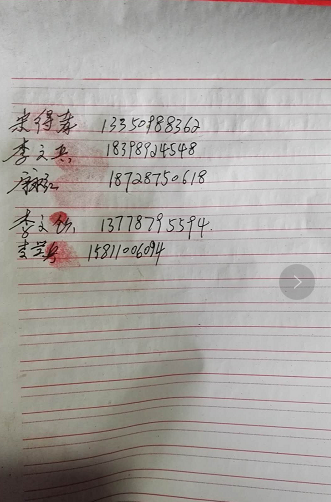 朱得寿 13350988362
李文兵 18398924548
18728750618
李文钦 13778795594.
李兰兵 15811006094